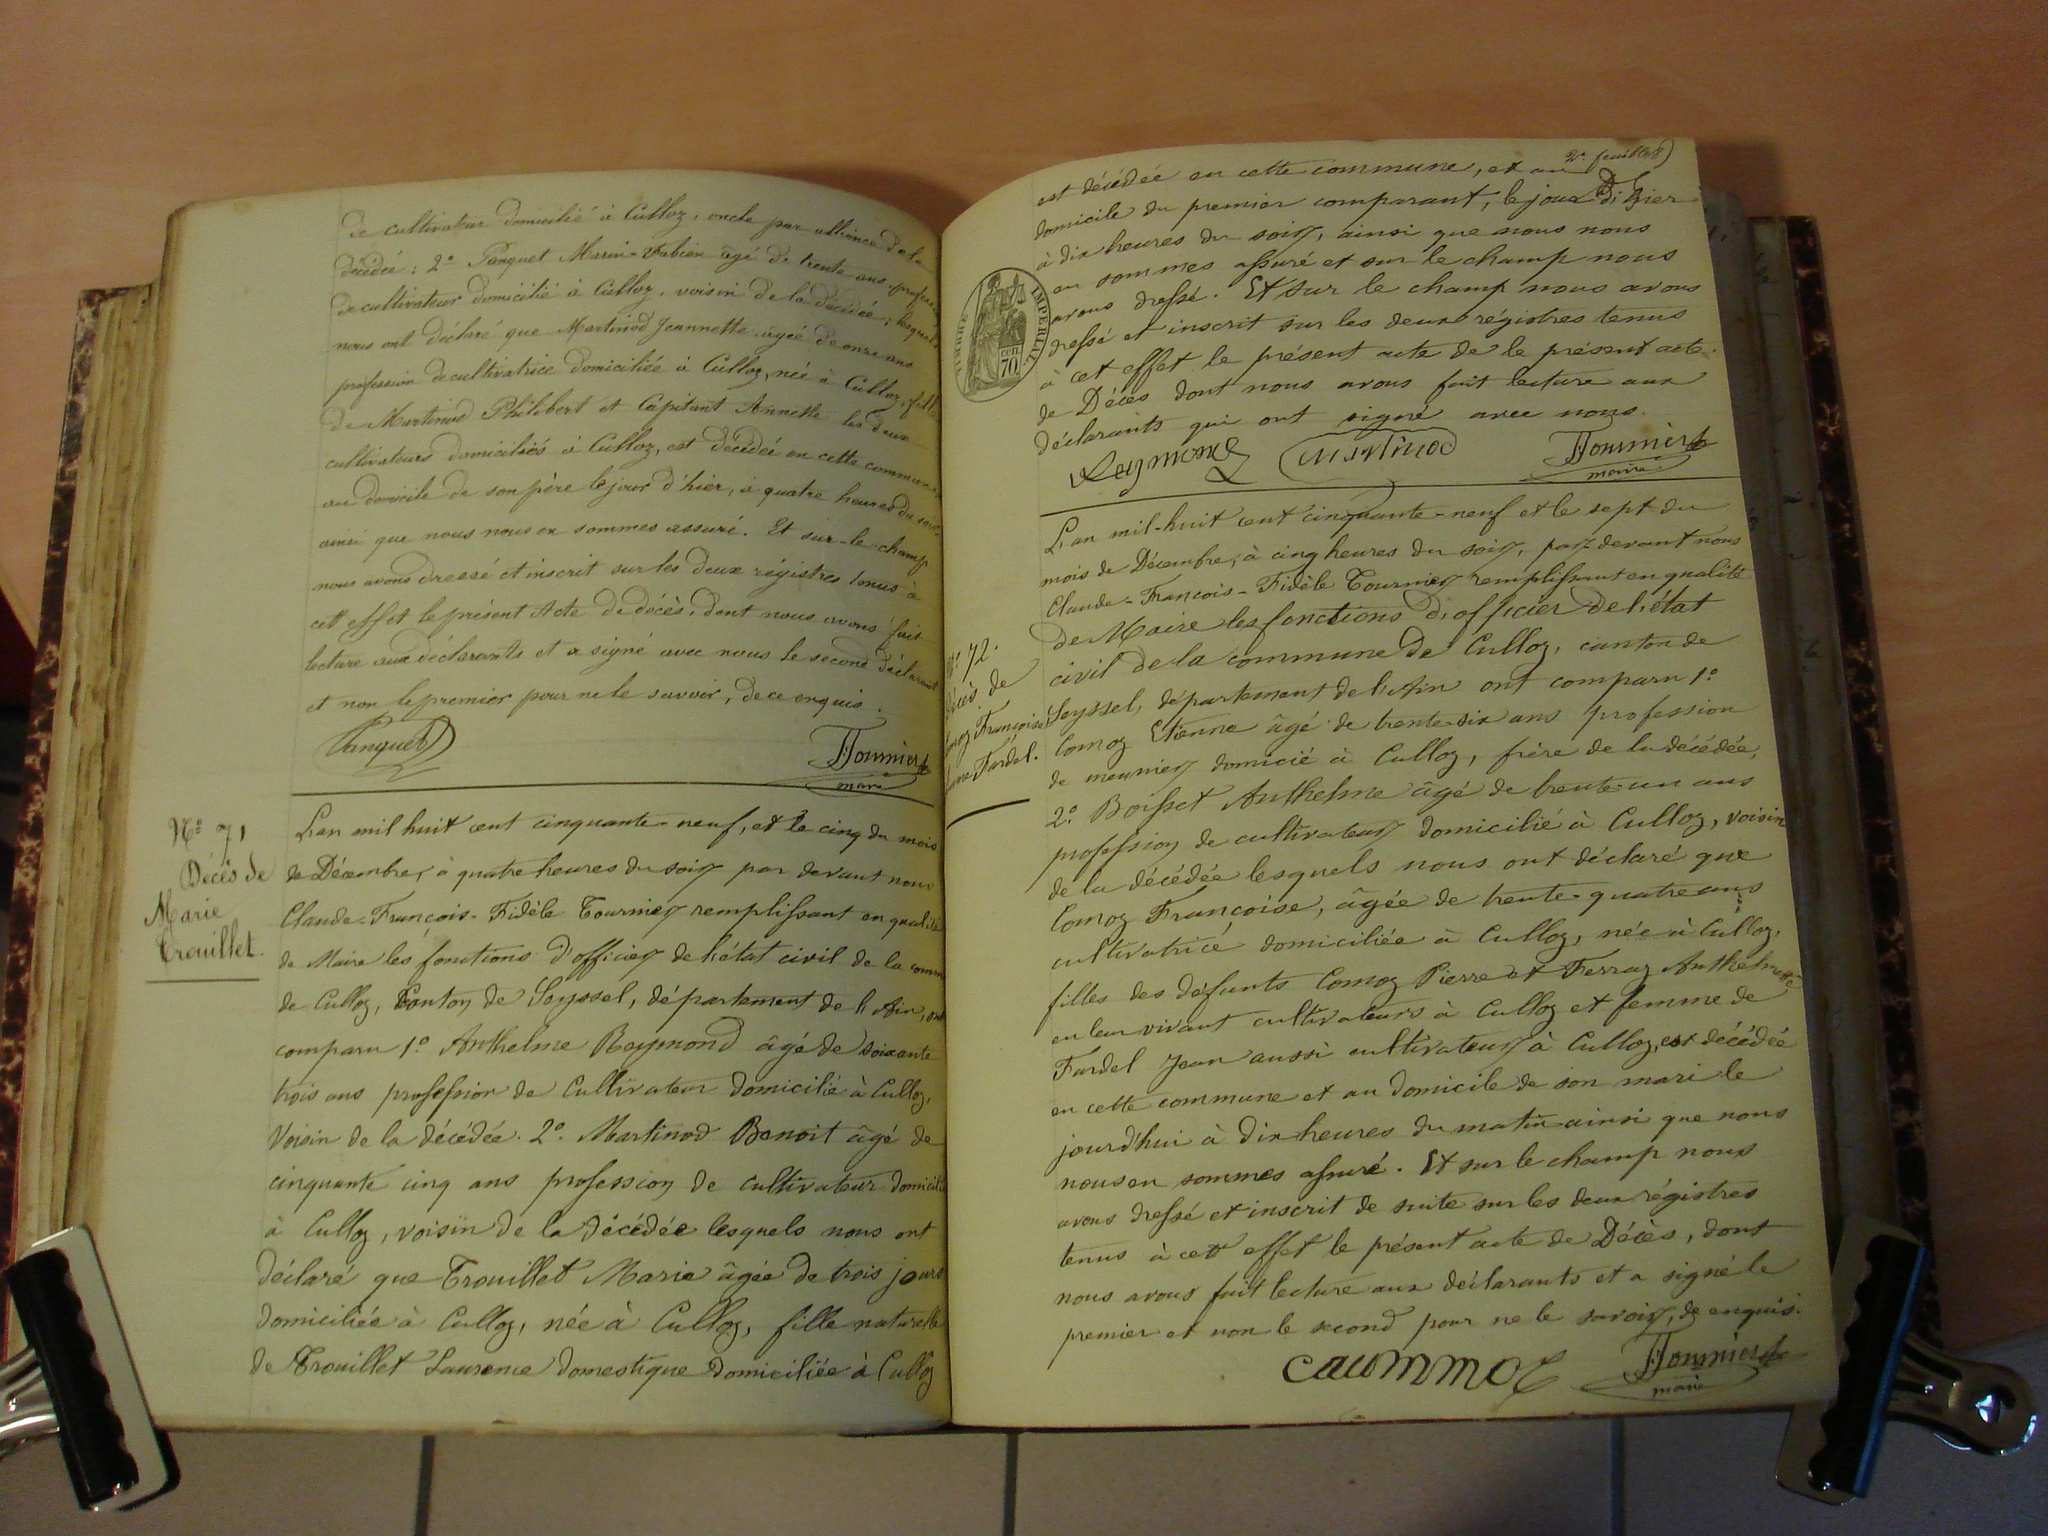 de cultivateur domicilié à Culloz, oncle par alliance de la
décédée ; 2° Panquet Marin-Fabien âgé de trente ans, profession
de cultivateur domicilié à Culloz, voisin de la décédée ; lesquels
nous ont déclaré que Martinod Jeannette âgée de onze ans
profession de cultivatrice domiciliée à Culloz, née à Culloz, fille
de Martinod Philibert et Capitant Annette les deux
cultivateurs domiciliés à Culloz, est décédée en cette commune,
au domicile de son père le jour d'hier, à quatre heures du soir,
ainsi que nous nous en sommes assuré. Et sur-le-champ
nous avons dressé et inscrit sur les deux régistres tenus à
cett effet le présent Acte de décès, dont nous avons fait
lecture aux déclarants et a signé avec nous le second déclarant
et non le premier pour ne le savoir, de ce enquis.
Panquet
Tournier
maire
N° 71
Décès de
Marie
Trouillet.
L'an mil huit cent cinquante-neuf, et le cinq du mois
de Décembre, à quatre heures du soir par devant nous
Claude-François-Fidèle Tournier remplissant en qualité
de Maire les fonctions d'officier de l'état civil de la comm
de Culloz, Canton de Seyssel, département de l'Ain, ont
comparu 1° Anthelme Raymond âgé de soixante
trois ans profession de Cultivateur domicilié à Culloz,
Voisin de la décédée. 2° Martinod Benoit âgé de
cinquante cinq ans profession de cultivateur domicilié
à Culloz, voisin de la décédée lesquels nous ont
déclaré que Trouillet Marie âgée de trois jours
domiciliée à Culloz, née à Culloz, fille naturelle
de Trouillet Laurence domestique domiciliée à Culloz
2e feuillet
est décédée en cette commune, et au
domicile du premier comparant, le jour D'hier
à dix heures du soir, ainsi que nous nous
en sommes assuré et sur le champ nous
avons dressé. Et sur le champ nous avons
dressé et inscrit sur les deux régistres tenus
à cet effet le présent acte de le présent acte
de Décès dont nous avons fait lecture aux
déclarants qui ont signé avec nous.
TIMBRE IMPERIAL
70
Raymond
Martinod
Tournier
maire
N° 72.
Décès de
Comoz Françoise
femme Fardel.
L'an mil-huit cent cinquante-neuf et le sept du
mois de Décembre, à cinq heures du soir, par devant nous
Claude-François-Fidèle Tournier remplissant en qualité
de Maire les fonctions d'officier de l'état
civil de la commune de Culloz, canton de
Seyssel, département de l'Ain ont comparu 1°
Comoz Etienne âgé de trente-six ans profession
de meunier domicié à Culloz, frère de la décédée,
2° Boisset Anthelme âgé de trente-un ans
profession de cultivateur domicilié à Culloz, voisin
de la décédée lesquels nous ont déclaré que
Comoz Françoise, âgée de trente-quatre ans
cultivatrice domiciliée à Culloz, née à Culloz,
filles des defunts Comoz Pierre et Ferraz Anthelmette
en leur vivant cultivateurs à Culloz et femme de
Fardel Jean aussi cultivateur à Culloz, est décédée
en cette commune et au domicile de son mari le
jourd'hui à dix heures du matin ainsi que nous
nous en sommes assuré. Et sur le champ nous
avons dressé et inscrit de suite sur les deux régistres
tenus à cett effet le présent acte de Décès, dont
nous avons fait lecture aux déclarants et a signé le
premier et non le second pour ne le savoir, de enquis.
caummoz
Tournier
maire